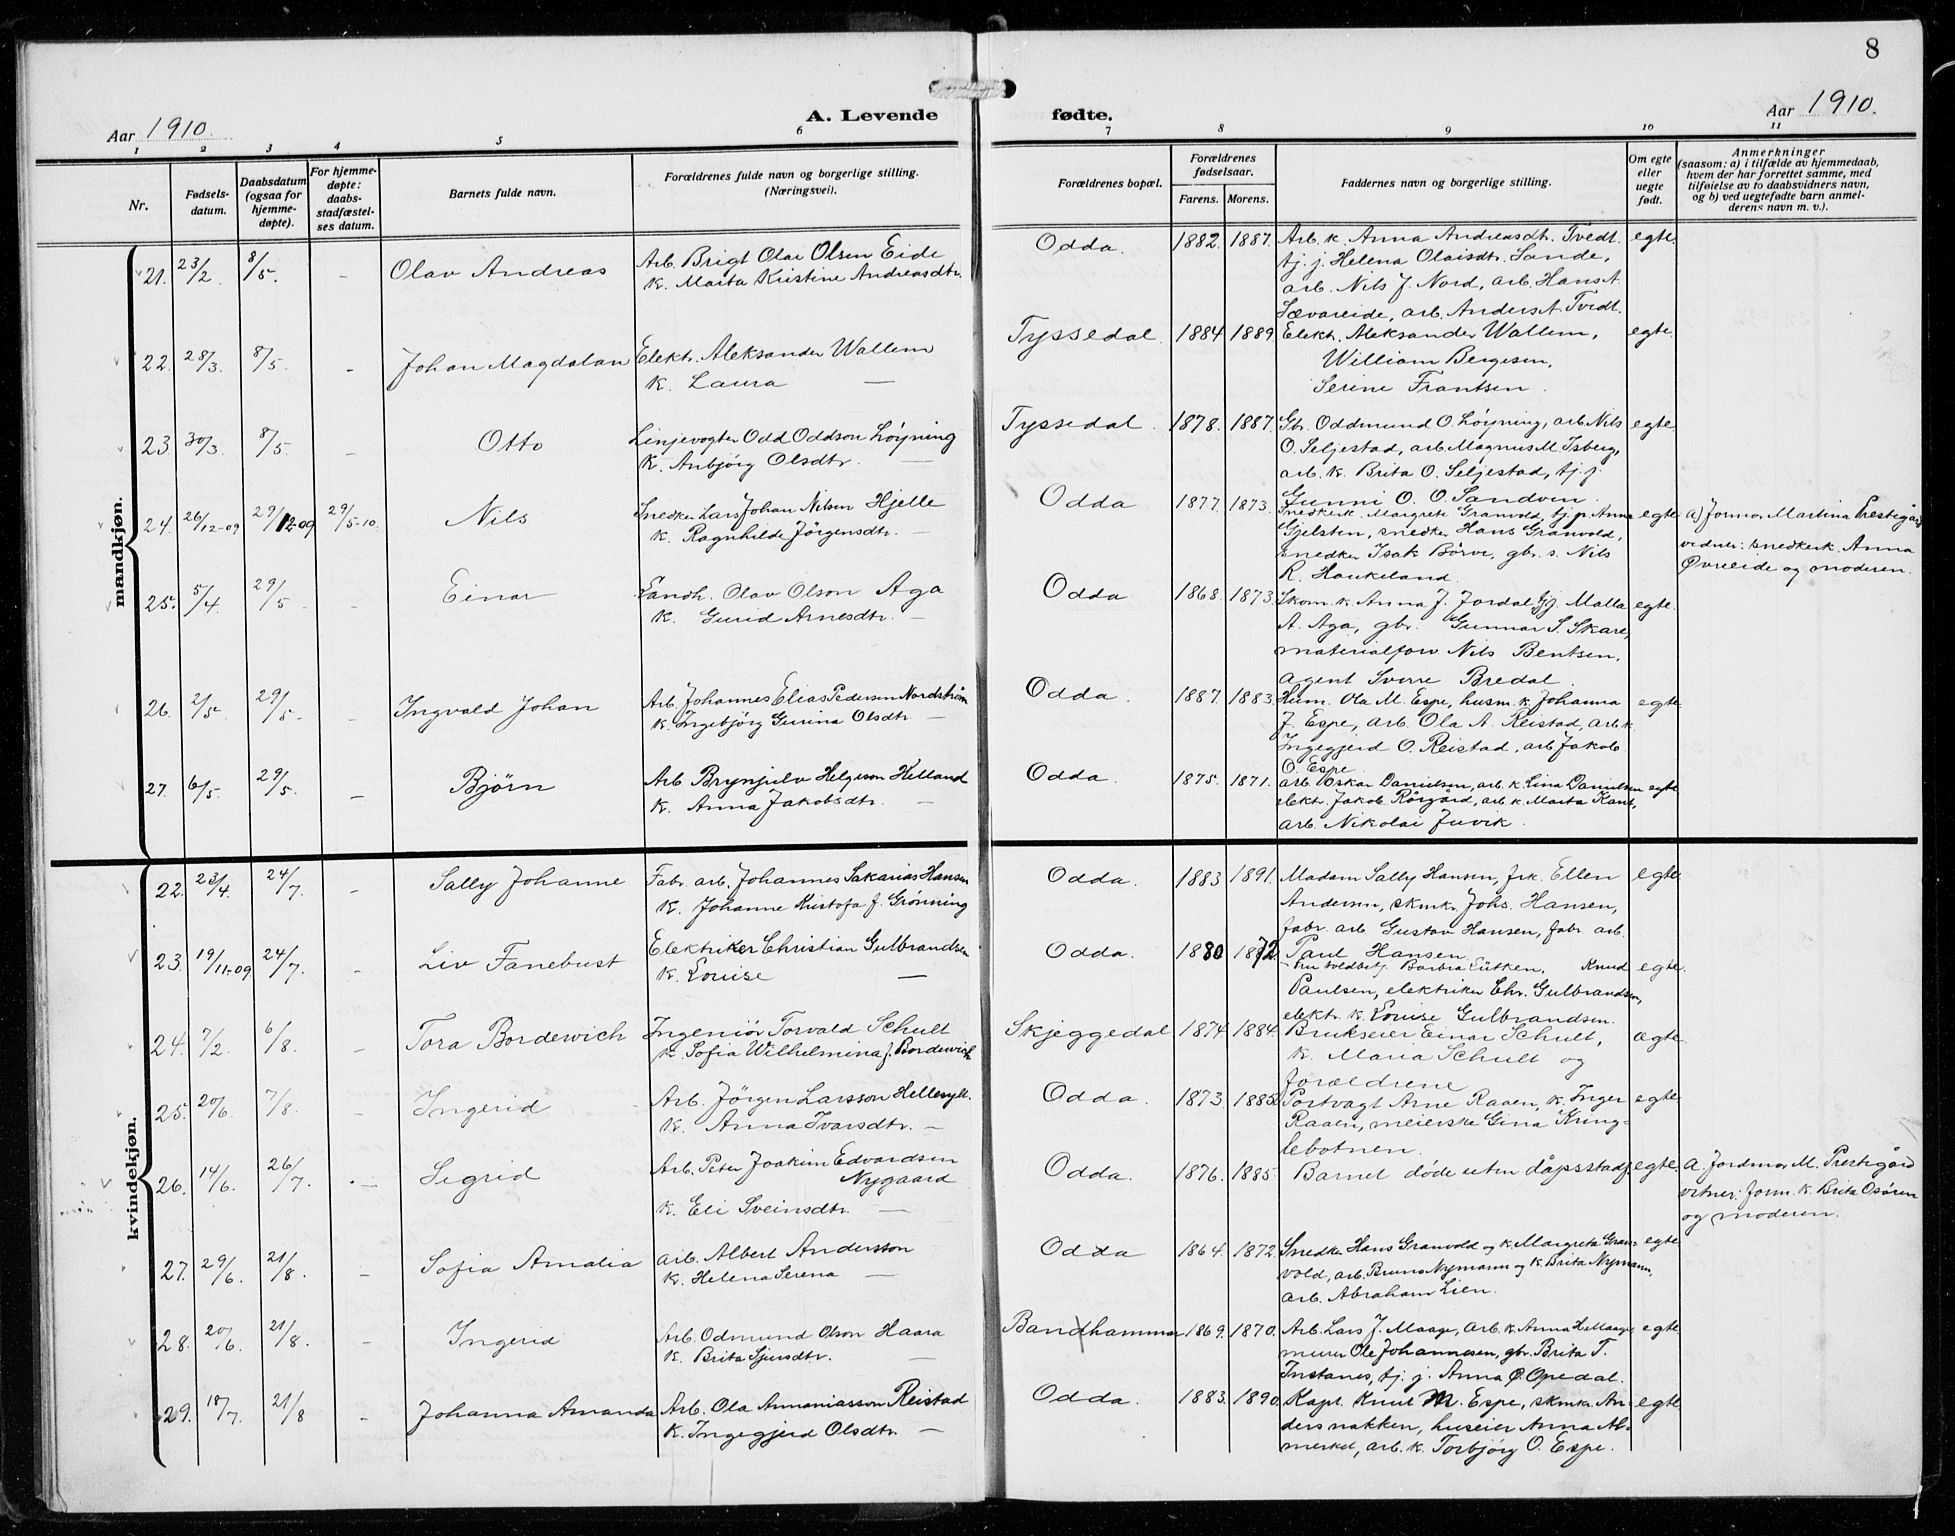 8
Aar 1910.
A. Levende
fødte.
Aar 1910.
1 2 3 4 5 6 7 8 9 10 11
Nr.
Fødsels-
datum.
Daabsdatum
(ogsaa for
hjemme-
døpte).
For hjemme-
døpte:
daabs-
stadfæstel-
ses datum.
Barnets fulde navn.
Forældrenes fulde navn og borgerlige stilling.
(Næringsvei).
Forældrenes bopæl.
Forældrenes
fødselsaar.
Farens. Morens.
Faddernes navn og borgerlige stilling.
Om egte
eller
uegte
født.
Anmerkninger
(saasom: a) i tilfælde av hjemmedaab,
hvem der har forrettet samme, med
tilføielse av to daabsvidners navn,
og b) ved uegtefødte barn anmel-
derens navn m. v.).
mandkjøn.
21. 23/2 8/5. - Olav Andreas
Arb. Brigt Olai Olsen Eide
K. Marta Kristine Andreasdtr.
Odda. 1882. 1887. egte.
Arb. k. Anna Andreasdt. Tvedt.
tj. j. Helena Olaisdtr. Sande,
arb. Nils J. Nord, arb. Hans A.
Sævareide, arb. Anders A Tvedt.
22. 28/3. 8/5. - Johan Magdalan
Elektr. Aleksander Wallem
K. Laura —
Tyssedal. 1884 1889. egte.
Elektr. Aleksander Wallem,
William Bergesen,
Serine Frantsen.
23. 30/3. 8/5. - Otto
Linjevogter Odd Oddson Löyning
K. Anbjörg Olsdtr. —
Tyssedal. 1878. 1887. egte
Gbr. Oddmund O. Löyning, arb. Nils
O. Seljestad, arb. Magnus M. Isberg,
arb. k. Brita O. Seljestad, tj. j.
Gunni O. O. Sandven.
24. 26/12-09 29/12-09 29/5-10. Nils
Snedker Lars Johan Nilsen Hjelle
K. Ragnhilde Jörgensdtr. —
Odda 1877. 1873. egte
Snedkerk. Margrete Granvold, tj.p. Anna
Gjelsten, snedker Hans Granvold,
snedker Isak Börve, gbr. s. Nils
R. Haukeland.
a) Jormor Martina Prestegård
vidner: snedkerk. Anna
Øvreeide og moderen.
25. 5/4. 29/5 - - Einar
Landh. Olav Olson Aga
K. Gurid Arnesdtr. —
Odda 1868. 1873. egte.
Skom. k. Anna J. Jordal, tj. Malla
A. Aga, gbr. Gunnar S. Skare,
materialforv. Nils Bentsen,
agent Sverre Bredal.
26. 2/5. 29/5 - - Ingvald Johan
Arb. Johannes Elias Pedersen Nordström
K. Ingebjörg Gurina Olsdtr. —
Odda. 1887. 1883. egte
Husm. Ola M. Espe, husm. k. Johanna
J. Espe, arb. Ola A. Reistad, arb. k.
Ingegjerd O. Reistad, arb. Jakob
O. Espe
27. 6/5. 29/5. - Bjørn
Arb. Brynjulv Helgeson Helland
K. Anna Jakobsdtr. —
Odda. 1875. 1871. egte
arb. Oskar Danielsen, arb. k. Lina Danielsen
elektr. Jakob Rörgård, arb. k. Marta Kant,
arb. Nikolai Juvik.
kvindekjøn.
22. 23/4. 24/7. - Sally Johanne
Fabr. arb. Johannes Sakarias Hansen
K. Johanne Kristofa f. Grönning
Odda. 1883 1891. egte
Madam Sally Hansen, frk. Ellen
Andersen, skmkr. Johs. Hansen,
fabr. arb. Gustav Hansen, fabr. arb.
Paul Hansen.
23. 19/11-09. 24/7. - Liv Fanebust
Elektriker Christian Gulbrandsen
K. Louise —
Odda. 1880 1872. egte.
Barbra Lütken. Knud
Paulsen, elektriker Chr. Gulbrandsen,
elektr. k. Louise Gulbrandsen.
24. 7/2. 6/8. - Tora Bordewich
Ingeniör Torvald Schult
K. Sofia Wilhelmina f. Bordewich
Skjeggedal 1874. 1884. ægte.
Brukseier Einar Schult,
K. Maria Schult og
forældrene
25. 20/6. 7/8. - Ingerid
Arb. Jörgen Larsson Hellesylt.
K. Anna Ivarsdtr. —
Odda. 1873. 1885. egte.
Portvagt Arne Raaen, k. Inger
Raaen, meierske Gina Kring-
lebotnen.
26. 14/6. 26/7. - Sigrid
Arb. Peter Joakim Edvardsen
Nygaard
K. Eli Sveinsdtr. —
Odda. 1876. 1885. egte.
Barnet døde uten dåpsstadf.
A. Jordmor M. Prestigård
vitner: form. k. Brita Osören
og moderen.
27. 29/6. 21/8. - Sofia Amalia
arb. Albert Andersson
K. Helena Serena —
Odda 1864. 1872. egte
Snedker Hans Granvold og k. Margreta Gran-
vold, arb. Bruno Nymann og k. Brita Nymann,
arb. Abraham Lien.
28. 20/6. 21/8. - Ingerid
Arb. Odmund Olson Haara
K. Brita Sjursdtr. —
Bandhammar 1869. 1870. egte
Arb. Lars J. Maage, arb. k. Anna H. Maage,
murer Ole Johannesen, gbr. Brita T.
Instanes, tj. j. Anna Ø. Opedal.
29. 18/7. 21/8 - Johanna Amanda
Arb. Ola Annaniasson Reistad
K. Ingegjerd Olsdtr. —
Odda. 1883. 1890. egte.
Kapt. Knut M. Espe, skmkr. An-
ders nakken, huseier Anna Al-
merket, arb. k. Torbjörg O. Espe.